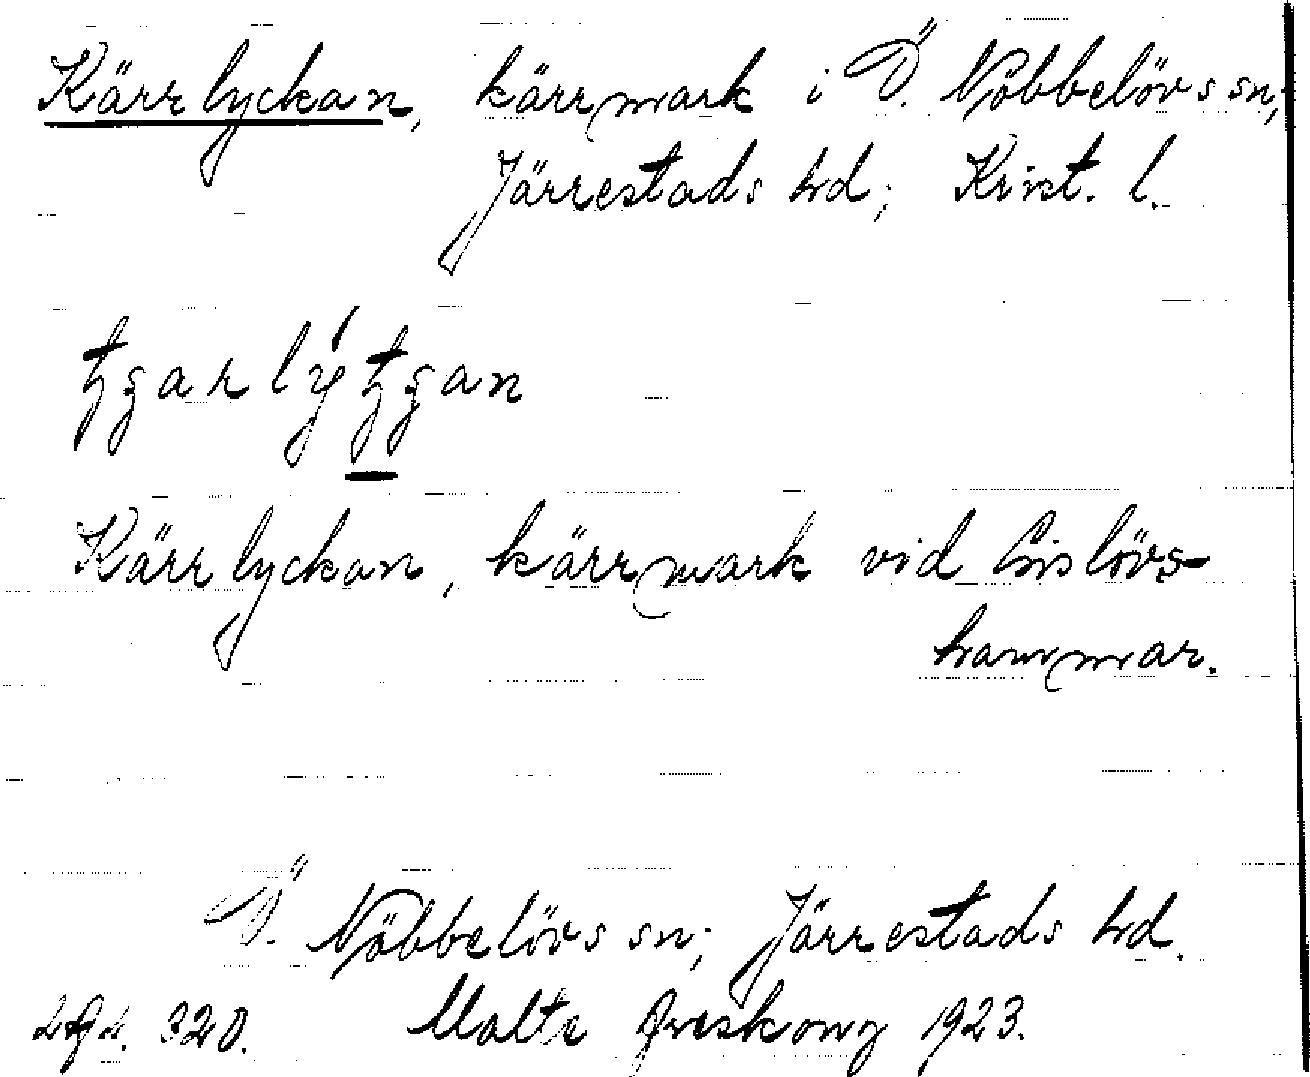 Kärrlyckan, kärrmark i Ö. Nöbbelövs sn;
Järrestads hd; Krist. l.
Kärrlyckan, kärrmark vid Gislövs-
hammar.
Ö. Nöbbelövs sn; Järrestads hd.
320. Malte 1923.